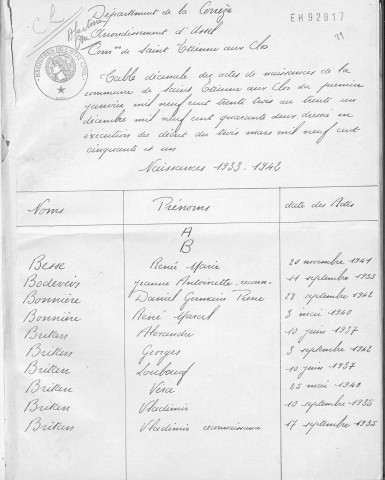 Département de la Corrèze
EH92917
Arrondissement d'Ussel
Comne de Saint Etienne aux Clos
Table décenale des actes de naissances de la
commune de Saint Etienne aux Clos du premier
janvier mil neuf cent trente trois au trente un
décembre mil neuf cent quarante deux dressé en
exécution du décret du trois mars mil neuf cent
cinquante et un
Naissances 1933-1942
Noms Prénoms date des Actes
A
B
Besse René Marie 20 novembre 1941
Bodeveix Jeanne Antoinette 11 septembre 1935
Bonnière Daniel Germain Pierre 28 septembre 1942
Bonnière René Marcel 3 mai 1940
Britan Alexandre 10 juin 1937
Britan Georges 3 septembre 1942
Britan 10 juin 1937
Britan Véra 25 mai 1940
Britan Vladimir 10 septembre 1935
Britan Vladimir reconnaissance 17 septembre 1935